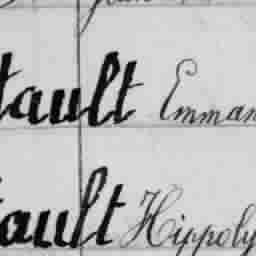 tault Emman
tault Hippoly